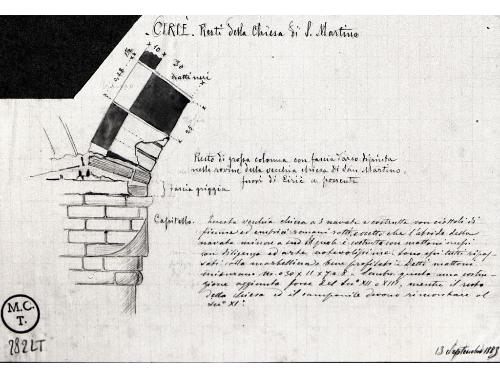 CIRIÈ. Resti della Chiesa di S. Martino
10 30
tratti neri
0,28
Resto di grossa colonna con fascia d'arco dipinta
nelle rovine della vecchia chiesa di San Martino,
fuori di Ciriè a ponente
fascia griggia
Capitello.
Questa vecchia chiesa a 3 navate è costrutta con ciottoli di
fiume ed embrici romani rotti, eccetto che l'abside della
navata minore a sud il quale è costrutto con mattoni
con diligenza ed arte
bene profilati. Detti mattoni
misurano m. 0.30 x 11 x 7 a 8.
zione aggiunta forse nel sec° XII o XIII, mentre il resto
della chiesa ed il campanile devono rimontare al
sec° XI.
M.C.
T.
282LT
13 Septembre 1883